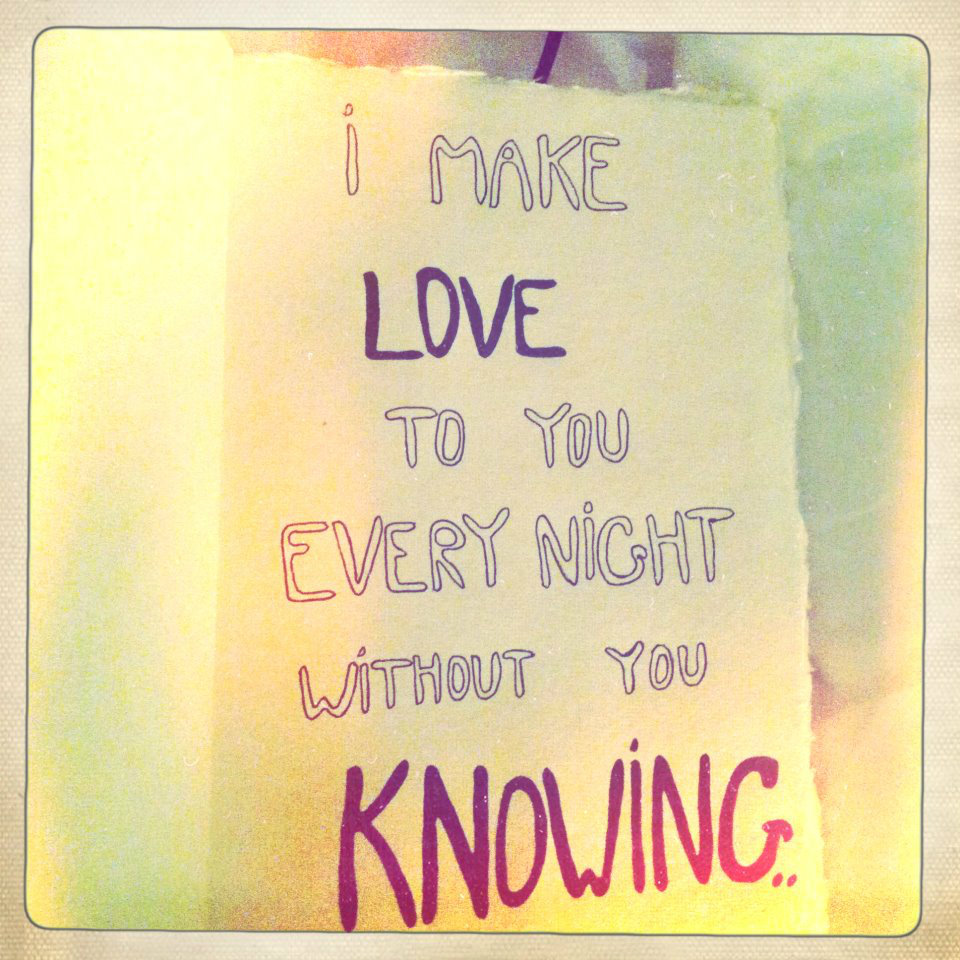 i MAKE
LOVE
TO YOU
EVERY NiGHT
WiTHOUT YOU
KNOWiNG..